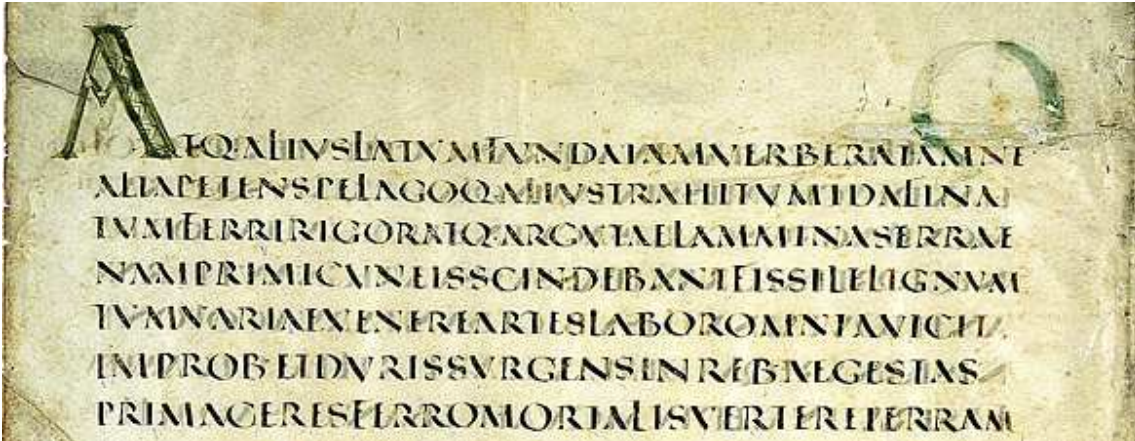 ATQ·ALIVSLATVMFVNDAIAMVERBERATAMNE
ALTAPETENSPELAGOQ·ALIVSTRAHITVMIDALINA
TVMFERRIRIGORATQ·ARGVTAELAMMINASERRAE
NAMPRIMICVNEISSCINDEBANTFISSILELIGNVM
TVMVARIAEVENEREARTESLABOROMNIAVICIT
IMPROB·ETDVRISSVRGENSINREB·AEGESTAS
PRIMACERESFERROMORTALISVERTERETERRAM